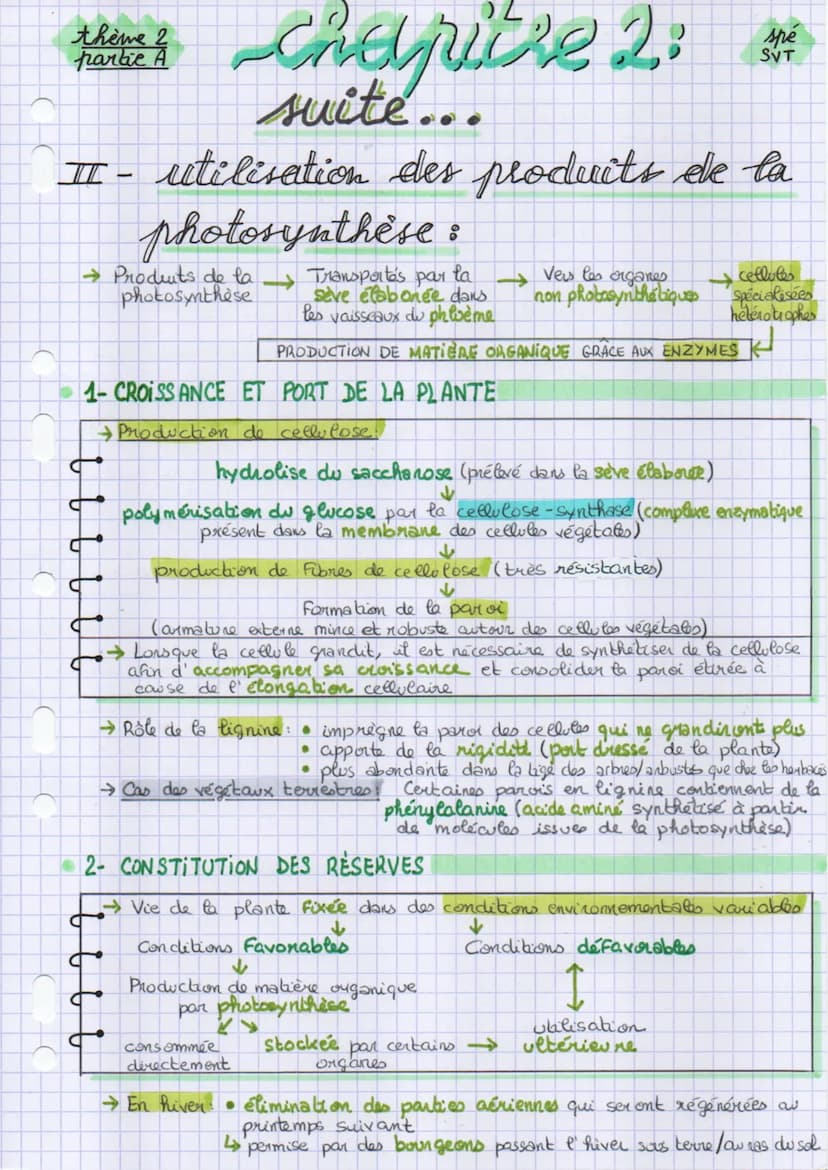 thème 2
partie A
Chapitre 2:
spé
SVT
suite...
II - utilisation des produits de la
photosynthèse :
→ Produits de la → Transportés par la → Vers les organes → cellules
photosynthèse sève élaborée dans non photosynthétiques spécialisées
les vaisseaux du phloème hétérotrophes
PRODUCTION DE MATIÈRE ORGANIQUE GRÂCE AUX ENZYMES
1- CROISSANCE ET PORT DE LA PLANTE
→ Production de cellulose:
hydrolise du saccharose (prélevé dans la sève élaborée)
↓
polymérisation du glucose par la cellulose-synthase (complexe enzymatique
présent dans la membrane des cellules végétales)
↓
production de fibres de cellulose (très résistantes)
↓
Formation de la paroi
(armature externe mince et robuste autour des cellules végétales)
→ Lorsque la cellule grandit, il est nécessaire de synthétiser de la cellulose
afin d'accompagner sa croissance et consolider la paroi étirée à
cause de l'élongation cellulaire
→ Rôle de la lignine: • imprègne la paroi des cellules qui ne grandiront plus
• apporte de la rigidité (port dressé de la plante)
• plus abondante dans la tige des arbres/arbustes que chez les herbacés
→ Cas des végétaux terrestres: Certaines parois en lignine contiennent de la
phénylalanine (acide aminé synthétisé à partir
de molécules issues de la photosynthèse)
2- CONSTITUTION DES RÉSERVES
→ Vie de la plante fixée dans des conditions environnementales variables
↓ ↓
Conditions favorables Conditions défavorables
↓ ↕
Production de matière organique
par photosynthèse
↙ ↘ utilisation
consommée stockée par certains → ultérieure
directement organes
→ En hiver: • élimination des parties aériennes qui seront régénérées au
printemps suivant
↳ permise par des bourgeons passant l'hiver sous terre/au ras du sol